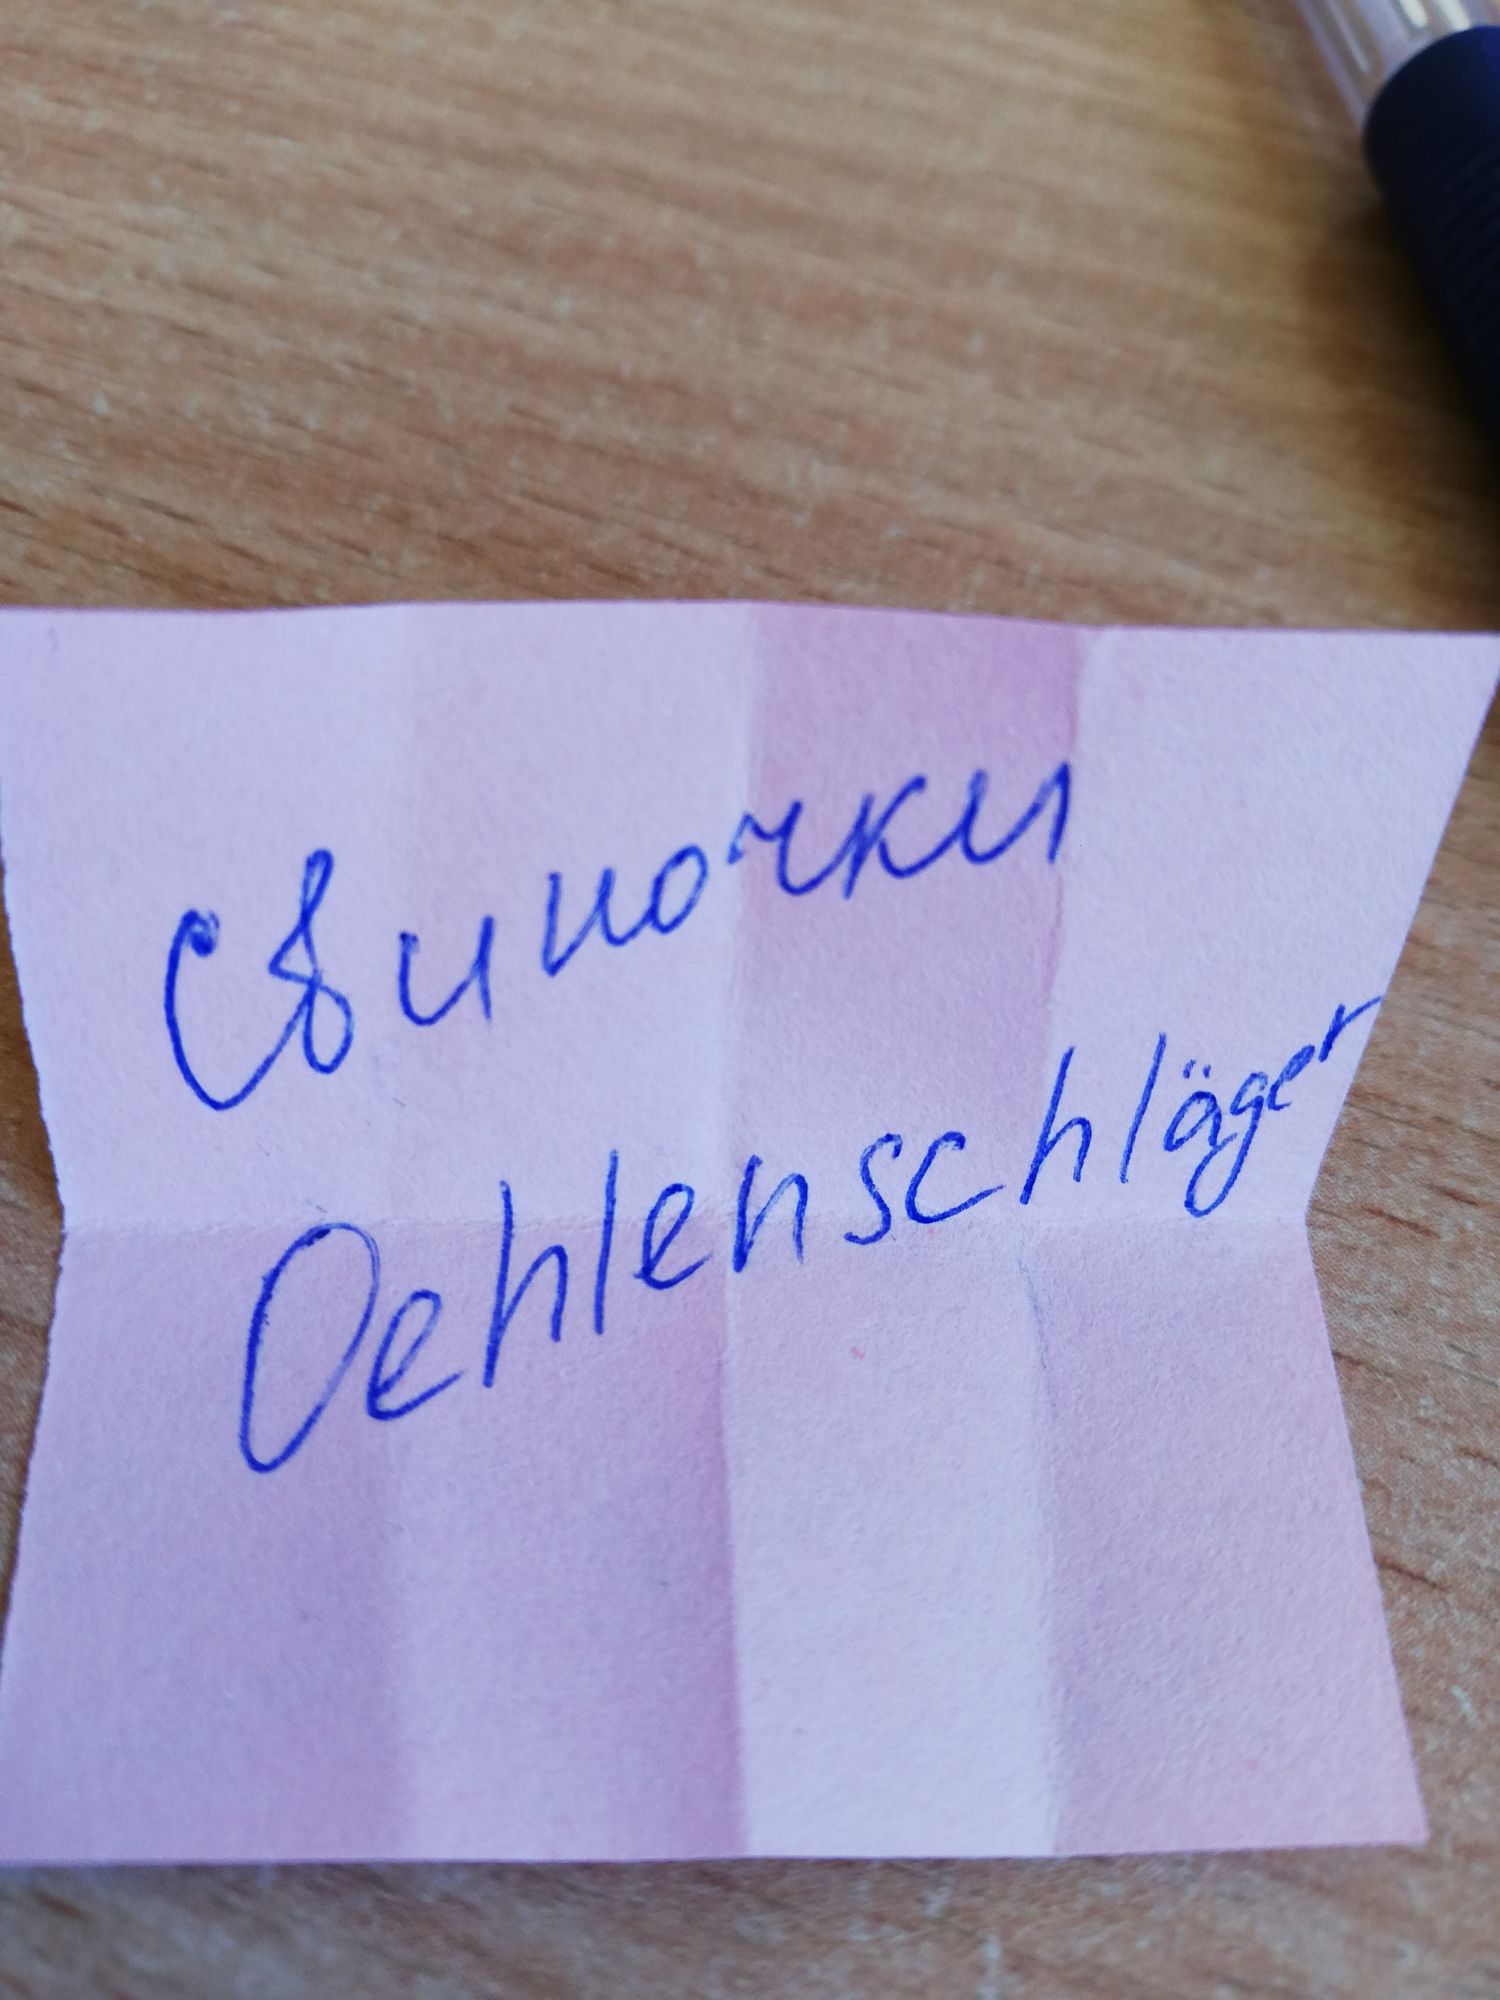 Свиночки
Oehlenschläger